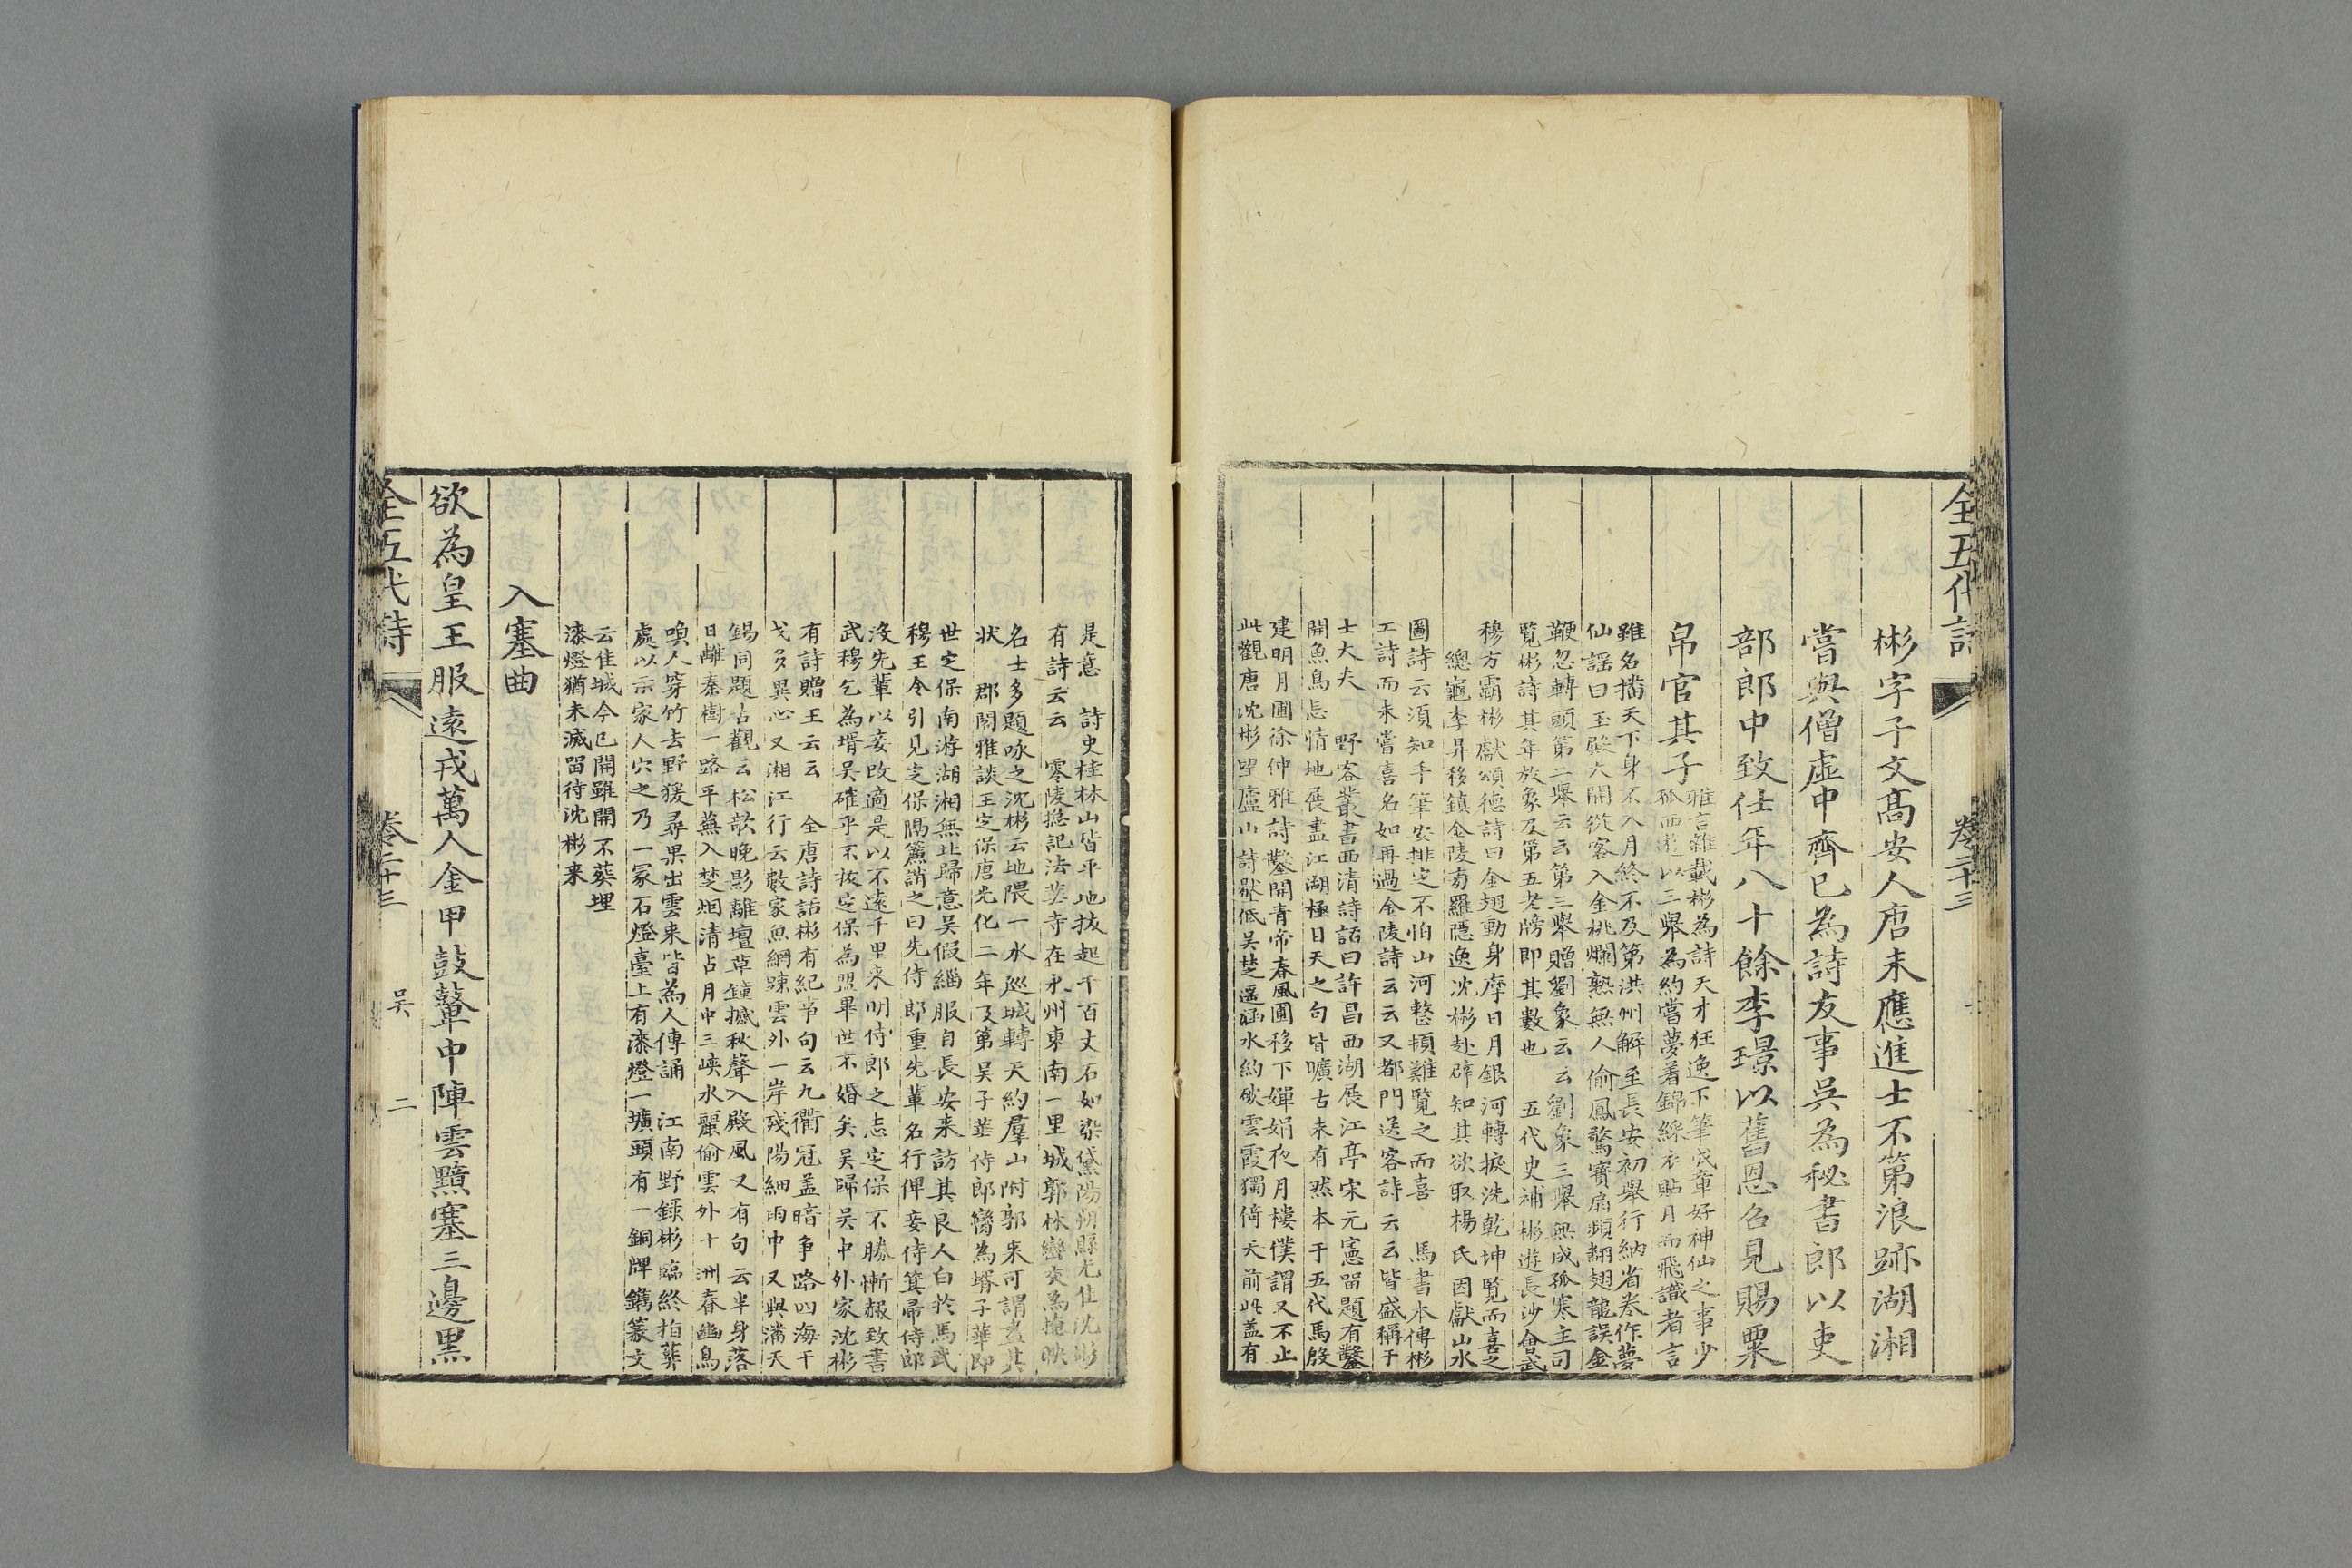 全五代詩 卷二十三
彬字子文髙安人唐末應進士不第浪跡湖湘
嘗與僧虛中齊已為詩友事吳為秘書郎以吏
部郎中致仕年八十餘李璟以舊恩召見賜粟
帛官其子
雅言雜載彬為詩天才狂逸下筆成章好神仙之事少
孤西遊以三舉為約嘗夢着錦綵衣貼月而飛識者言
雖名播天下身不入月終不及第洪州解至長安初舉行納省卷作夢
仙謡曰玉殿大開從客入金桃爛熟無人偷鳳驚寳扇頻翻翅龍誤金
鞭忽轉頭第二舉云云第三舉贈劉象云云劉象三舉無成孤寒主司
覽彬詩其年放象及第五老牓即其數也 五代史補彬遊長沙會武
穆方霸彬獻頌德詩曰金翅動身摩日月銀河轉捩洗乾坤覽而喜之
總龜李昇移鎮金陵旁羅隠逸沈彬赴辟知其欲取楊氏因獻山水
圖詩云須知手筆安排定不怕山河整頓難覽之而喜 馬書本傳彬
工詩而未嘗喜名如再過金陵詩云云又都門送客詩云云皆盛稱于
士大夫 野客叢書西清詩話曰許昌西湖展江亭宋元憲留題有鑿
開魚鳥忘情地展盡江湖極目天之句皆曠古未有然本于五代馬殷
建明月圃徐仲雅詩鑿開青帝春風圃移下嬋娟夜月樓僕謂又不止
此觀唐沈彬望廬山詩壓低吳楚遥涵水約破雲霞獨倚天前此盖有
是意 詩史桂林山皆平地拔起千百丈石如染黛陽朔縣尤佳沈彬
有詩云云 零陵摠記法華寺在永州東南一里城郭林巒交為掩映
名士多題咏之沈彬云地隈一水巡城轉天約羣山附郭來可謂盡其
状 郡閣雅談王定保唐光化二年及第吳子華侍郎臠為壻子華即
世定保南游湖湘無北歸意吳假緇服自長安来訪其良人白於馬武
穆王令引見定保隔簾誚之曰先侍郎重先輩名行俾妾侍箕帚侍郎
没先輩以妾改適是以不遠千里来明侍郎之志定保不勝慚赧致書
武穆乞為壻吳確乎不拔定保為盟畢世不婚矣吳歸吳中外家沈彬
有詩贈王云云 全唐詩話彬有紀夢句云九衢冠盖暗争路四海干
戈多異心又湘江行云數家魚網踈雲外一岸殘陽細雨中又與滿天
錫同題古觀云松欹晚影離壇草鐘撼秋聲入殿風又有句云半身落
日離秦樹一路平蕪入楚烟清占月中三峽水麗偷雲外十洲春幽鳥
喚人穿竹去野猨尋果出雲来皆為人傳誦 江南野錄彬臨終指葬
處以示家人穴之乃一冡石燈臺上有漆燈一壙頭有一銅牌鐫篆文
云佳城今已開雖開不葬埋
漆燈猶未滅畱待沈彬来
入塞曲
欲為皇王服遠戎萬人金甲鼓鼙中陣雲黯塞三邊黑
全五代詩 卷二十三 吴 二